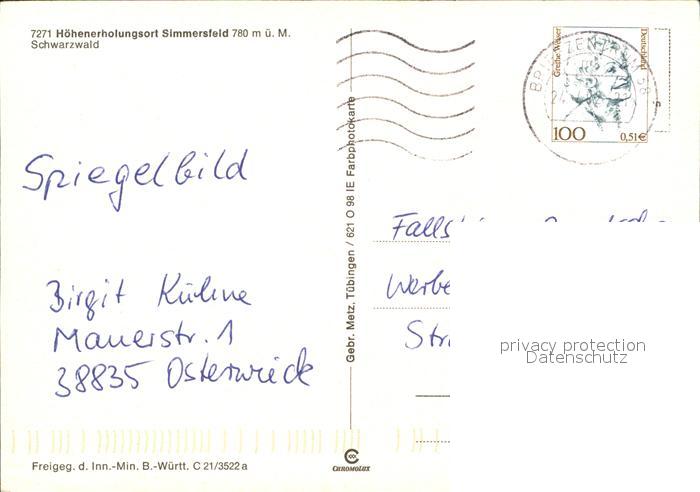 7271 Höhenerholungsort Simmersfeld 780 m ü. M.
Schwarzwald
Spiegelbild
Birgit Kühne
Mauerstr. 1
38835 Osterwieck
Freigeg. d. Inn.-Min. B.-Württ. C 21/3522 a
Gebr. Metz, Tübingen / 621 O 98 IE Farbphotokarte
CHROMOLUX
Grethe Weiser
Deutschland
100
0,51€
BRIEFZENTRUM 38
Falls
Werbe
Str
privacy protection
Datenschutz